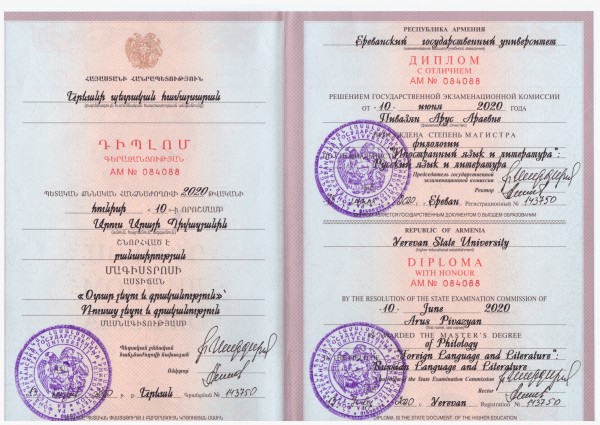 ՀԱՅԱՍՏԱՆԻ ՀԱՆՐԱՊԵՏՈՒԹՅՈՒՆ
Երևանի պետական համալսարան
ԴԻՊԼՈՄ
ԳԵՐԱԶԱՆՑՈՒԹՅԱՆ
AM № 084088
ՊԵՏԱԿԱՆ ՔՆՆԱԿԱՆ ՀԱՆՁՆԱԺՈՂՈՎԻ 2020 ԹՎԱԿԱՆԻ
հունիսի 10-ի ՈՐՈՇՄԱՄԲ
Արուս Արայի Պիվազյանին
ՇՆՈՐՀՎԱԾ Է
բանասիրության
ՄԱԳԻՍՏՐՈՍԻ
ԱՍՏԻՃԱՆ
«Օտար լեզու և գրականություն»՝
Ռուսաց լեզու և գրականություն
ՄԱՍՆԱԳԻՏՈՒԹՅԱՄԲ
Պետական քննական
հանձնաժողովի նախագահ
Ռեկտոր
2020 թ. Երևան Գրանցման № 143750
РЕСПУБЛИКА АРМЕНИЯ
Ереванский государственный университет
ДИПЛОМ
С ОТЛИЧИЕМ
AM № 084088
РЕШЕНИЕМ ГОСУДАРСТВЕННОЙ ЭКЗАМЕНАЦИОННОЙ КОМИССИИ
ОТ 10 июня 2020 ГОДА
Пивазян Арус Араевне
СТЕПЕНЬ МАГИСТРА
филологии
"Иностранный язык и литература":
Русский язык и литература
Председатель государственной
экзаменационной комиссии
Ректор
2020 Ереван Регистрационный № 143750
ЯВЛЯЕТСЯ ГОСУДАРСТВЕННЫМ ДОКУМЕНТОМ О ВЫСШЕМ ОБРАЗОВАНИИ
REPUBLIC OF ARMENIA
Yerevan State University
DIPLOMA
WITH HONOUR
AM № 084088
BY THE RESOLUTION OF THE STATE EXAMINATION COMMISSION OF
10 June 2020
Arus Pivazyan
THE MASTER'S DEGREE
of Philology
"Foreign Language and Literature":
Russian Language and Literature
of the State Examination Commission
Rector
2020 Yerevan Registration № 143750
DIPLOMA IS THE STATE DOCUMENT OF THE HIGHER EDUCATION